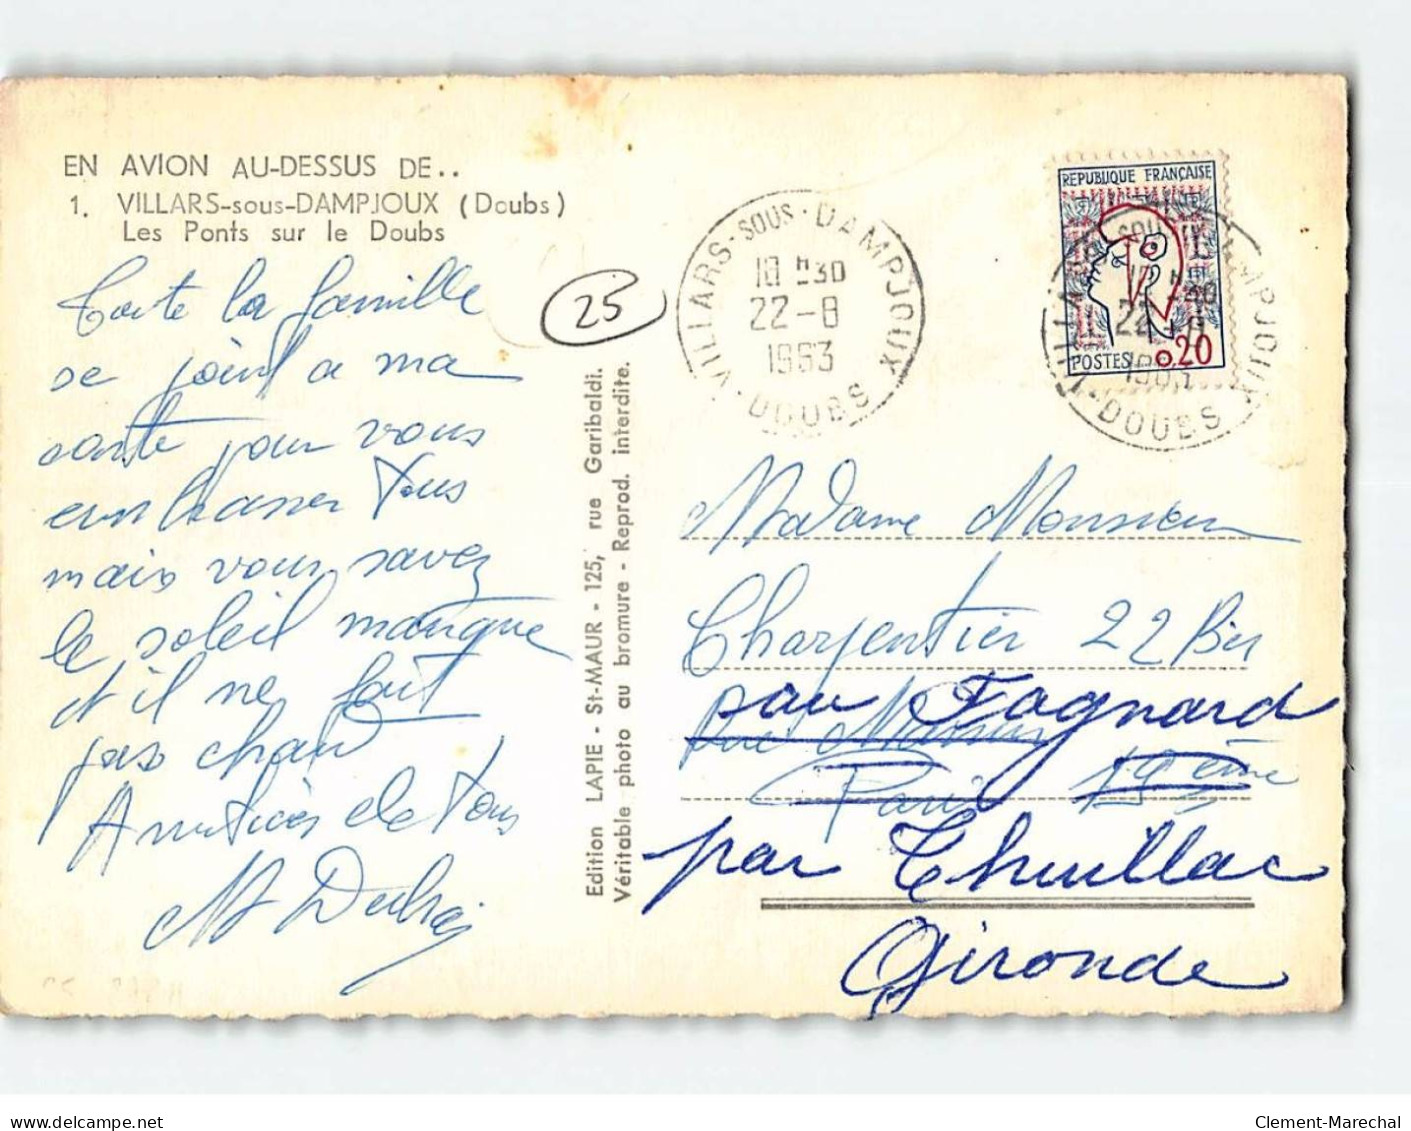 EN AVION AU-DESSUS DE..
1. VILLARS-sous-DAMPJOUX (Doubs)
Les Ponts sur le Doubs
Toute la famille
se joint a ma
carte pour vous
embrasser tous
mais vous savez
le soleil manque
et il ne fait
pas chaud
Amitiés de tous
25
Edition LAPIE - St-MAUR - 125, rue Garibaldi.
Véritable photo au bromure - Reprod. interdite.
VILLARS-SOUS-DAMPJOUX
18 H30
22-8
1963
DOUBS
REPUBLIQUE FRANÇAISE
POSTES 0.20
DOUBS
Madame Monsieur
Charpentier 22 Bis
rue
Paris 19ème
Fagnard
par
Gironde
delcampe.net
Clement-Marechal